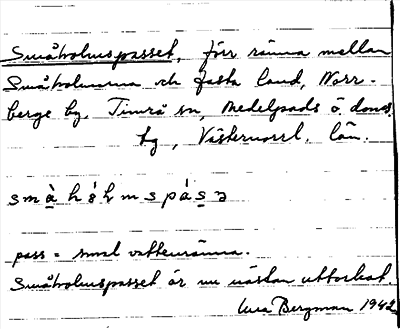 Småholmspasset, förr ränna mellan
Småholmarna och fasta land, Norr-
berge by, Timrå sn, Medelpads ö. doms.
tg, Västernorrl. län.
pass = smal vattenränna.
Småholmspasset är nu nästan uttorkat.
Bergman 1942